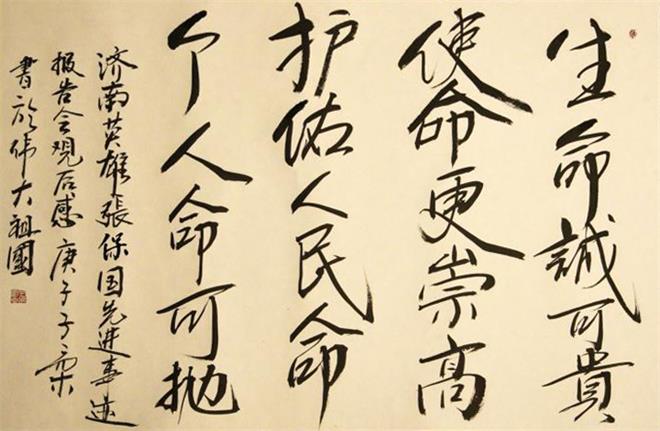 生命誠可貴
使命更崇高
护佑人民命
个人命可抛
济南英雄張保国先進事迹
报告会观后感 庚子子柔
書於伟大祖國